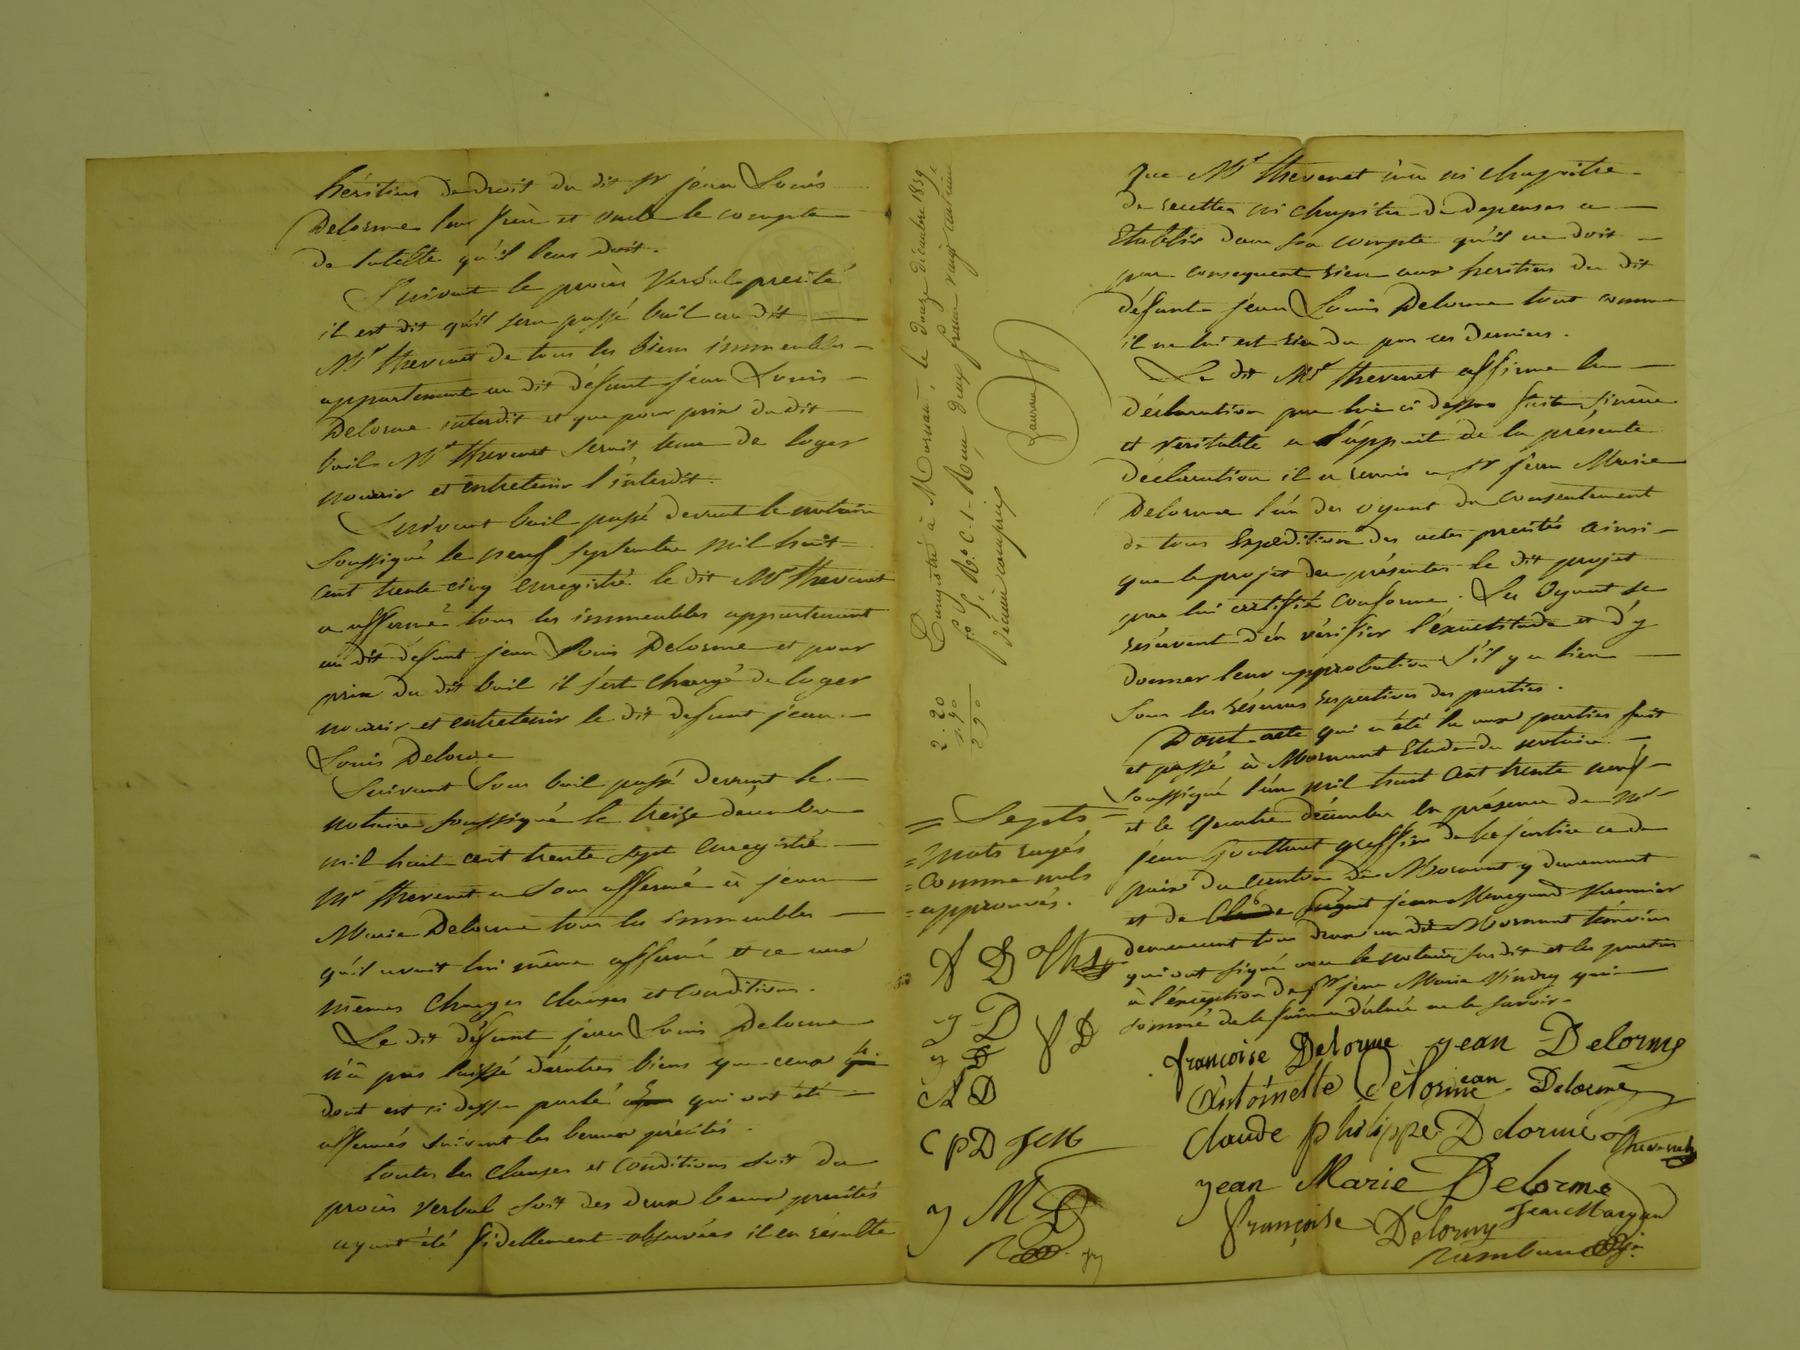 héritiers de droit du dit Sr jean Louis
Delorme leur frère et rendre le compte
de tutelle qu'il leur doit.
Suivant le procès verbal precité
il est dit qu'il sera passé bail au dit
Mr thevenet de tous les biens immeubles
appartenant au dit défunt jean Louis
Delorme interdit et que pour prix du dit
bail Mr thevenet serait tenu de loger
nourrir et entretenir l'interdit.
Suivant bail passé devant le notaire
soussigné le neuf septembre mil huit
cent trente cinq enregistré le dit Mr thevenet
a affermé tous les immeubles appartenant
au dit défunt jean Louis Delorme et pour
prix du dit bail il s'est chargé de loger
nourrir et entretenir le dit defunt jean
Louis Delorme
Suivant sous bail passé devant le
notaire soussigné le treize décembre
mil huit cent trente sept enregistré
Mr thevenet a sous affermé à jean
Marie Delorme tous les immeubles
qu'il avait lui même affermé et ce aux
mêmes charges clauses et conditions.
Le dit défunt jean Louis Delorme
n'a pas laissé d'autres biens que ceux
dont est ci dessus parlé qui ont été
affermés suivant les beaux précités.
toutes les clauses et conditions soit du
procès verbal soit des deux beaux précités
ayant été fidellement observées il en résulte
Enregistré à Mornant, le douze décembre 1839
fo 5, Ro C. 1. Reçu deux francs vingt centimes
décime compris
2. 20
2 90
= Septs =
= mots rayés
= comme nuls
= approuvés.
A D Th
J D J D
A D
C P D J M
J M D
que Mr thevenet n'a ni chapitre
de recettes ni chapitre de depenses a
Etablir dans son compte qu'il ne doit
par consequent rien aux heritiers du dit
défunt jean Louis Delorme tout comme
il ne lui est rien du par ces derniers.
Le dit Mr thevenet affirme la
déclaration par lui ci dessus faite sincère
et veritable a l'appuit de la présente
déclaration il a remis a Sr jean Marie
Delorme l'un des oyant du consentement
de tous Expeditions des actes precités ainsi
que le projet des présentes le dit projet
par lui certifié conforme. Les Oyant se
réservent d'en vérifier l'exactitude et d'y
donner leur approbation s'il y a lieu
sous les réserves respectives des parties.
Dont acte qui a été lu aux parties fait
et passé à Mornant Etude du notaire
soussigné l'an mil huit cent trente neuf
et le quatre décembre en présence de Mrs
jean Gouttant greffier de la justice de
paix du canton de Mornant y demeurant
et de jean Margand
demeurant tous deux au dit Mornant témoins
qui ont signé avec le notaire susdit et les parties
à l'exception de Sr jean Marie Vindry qui
sommé de le faire a déclaré ne le savoir.
françoise Delorme jean Delorme
Antoinette Delorme jean Delorme
Claude philippe Delorme Thevenet
jean Marie Delorme
françoise Delorme Jean Margand